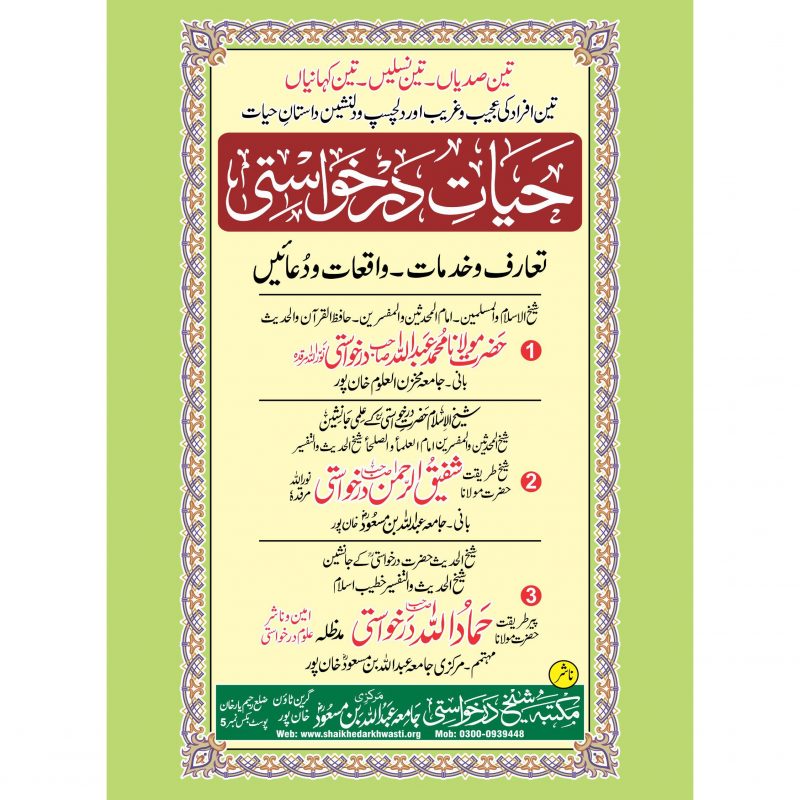 تین صدیاں۔ تین نسلیں۔ تین کہانیاں
تین افراد کی عجیب و غریب اور دلچسپ و دلنشین داستانِ حیات
حیاتِ درخواستی
تعارف و خدمات ۔ واقعات و دُعائیں
شیخ الاسلام والمسلمین۔ امام المحدثین والمفسرین۔ حافظ القرآن والحدیث
1 حضرت مولانا محمد عبداللہ صاحب درخواستی نوراللہ مرقدہ
بانی۔ جامعہ مخزن العلوم خان پور
شیخ الاسلام حضرت درخواستیؒ کے علمی جانشین
شیخ المحدثین والمفسرین امام العلماء والصلحاء شیخ الحدیث والتفسیر
2 شیخ طریقت حضرت مولانا شفیق الرحمن صاحب درخواستی نوراللہ مرقدہ
بانی۔ جامعہ عبداللہ بن مسعودؓ خان پور
شیخ الحدیث حضرت درخواستیؒ کے جانشین
شیخ الحدیث والتفسیر خطیب اسلام
3 پیر طریقت حضرت مولانا حماد اللہ صاحب درخواستی مدظلہ امین و ناشر علوم درخواستی
مہتمم۔ مرکزی جامعہ عبداللہ بن مسعودؓ خان پور
ناشر
مکتبہ شیخ درخواستی مرکزی جامعہ عبداللہ بن مسعودؓ گرین ٹاؤن خان پور ضلع رحیم یار خان پوسٹ بکس نمبر 5
Web: www.shaikhedarkhwasti.org Mob: 0300-0939448